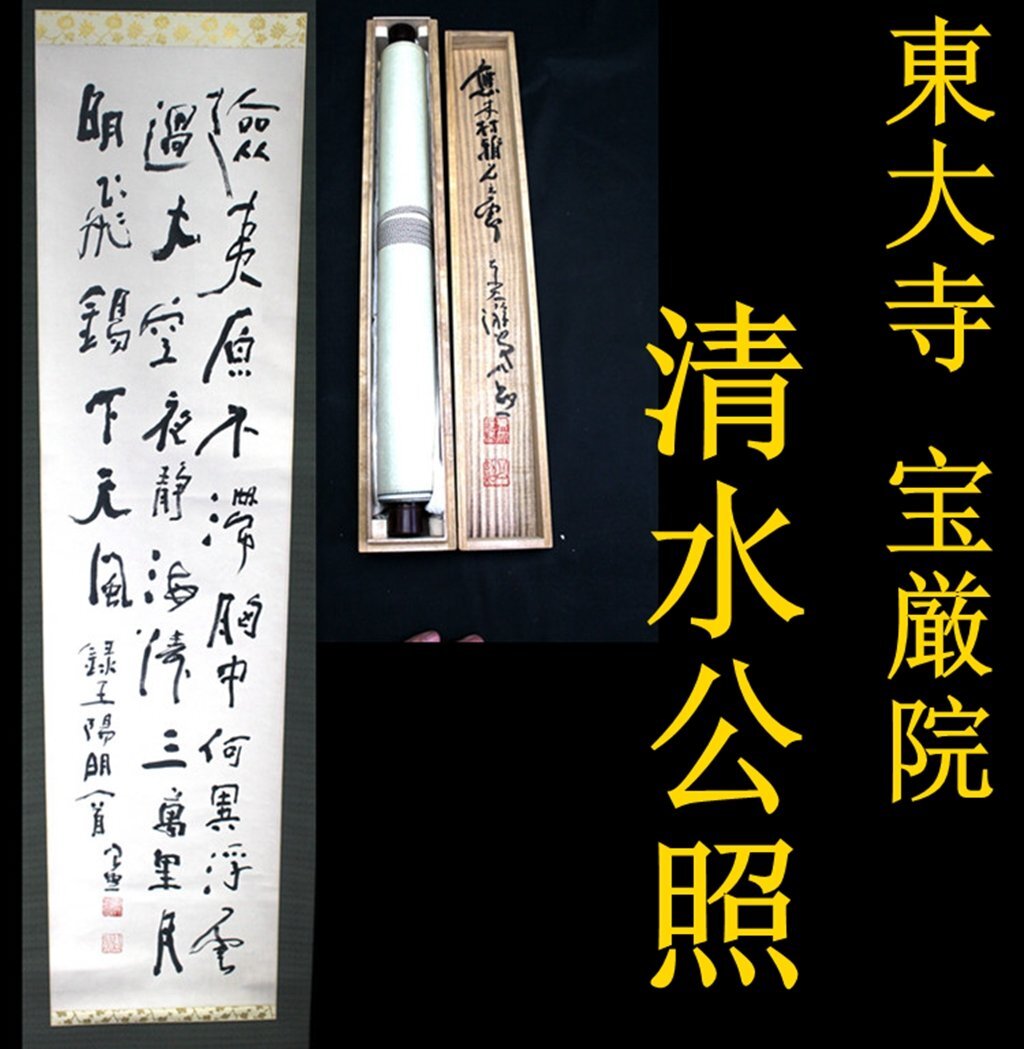 東大寺 宝厳院
清水公照
應木村雅
險夷原不滞胸中何異浮雲
過太空夜静海濤三萬里月
明飛錫下天風 録王陽明 公照